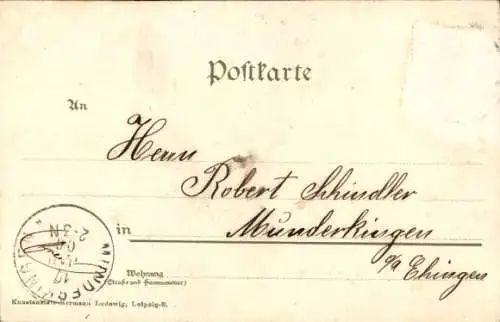 Postkarte
An
Herrn
Robert Schindler
in Munderkingen
o/a Ehingen
Wohnung
(Straße und Hausnummer)
Kunstanstalt Hermann Ludewig, Leipzig-R.
MUNDERKINGEN
17
2-3N